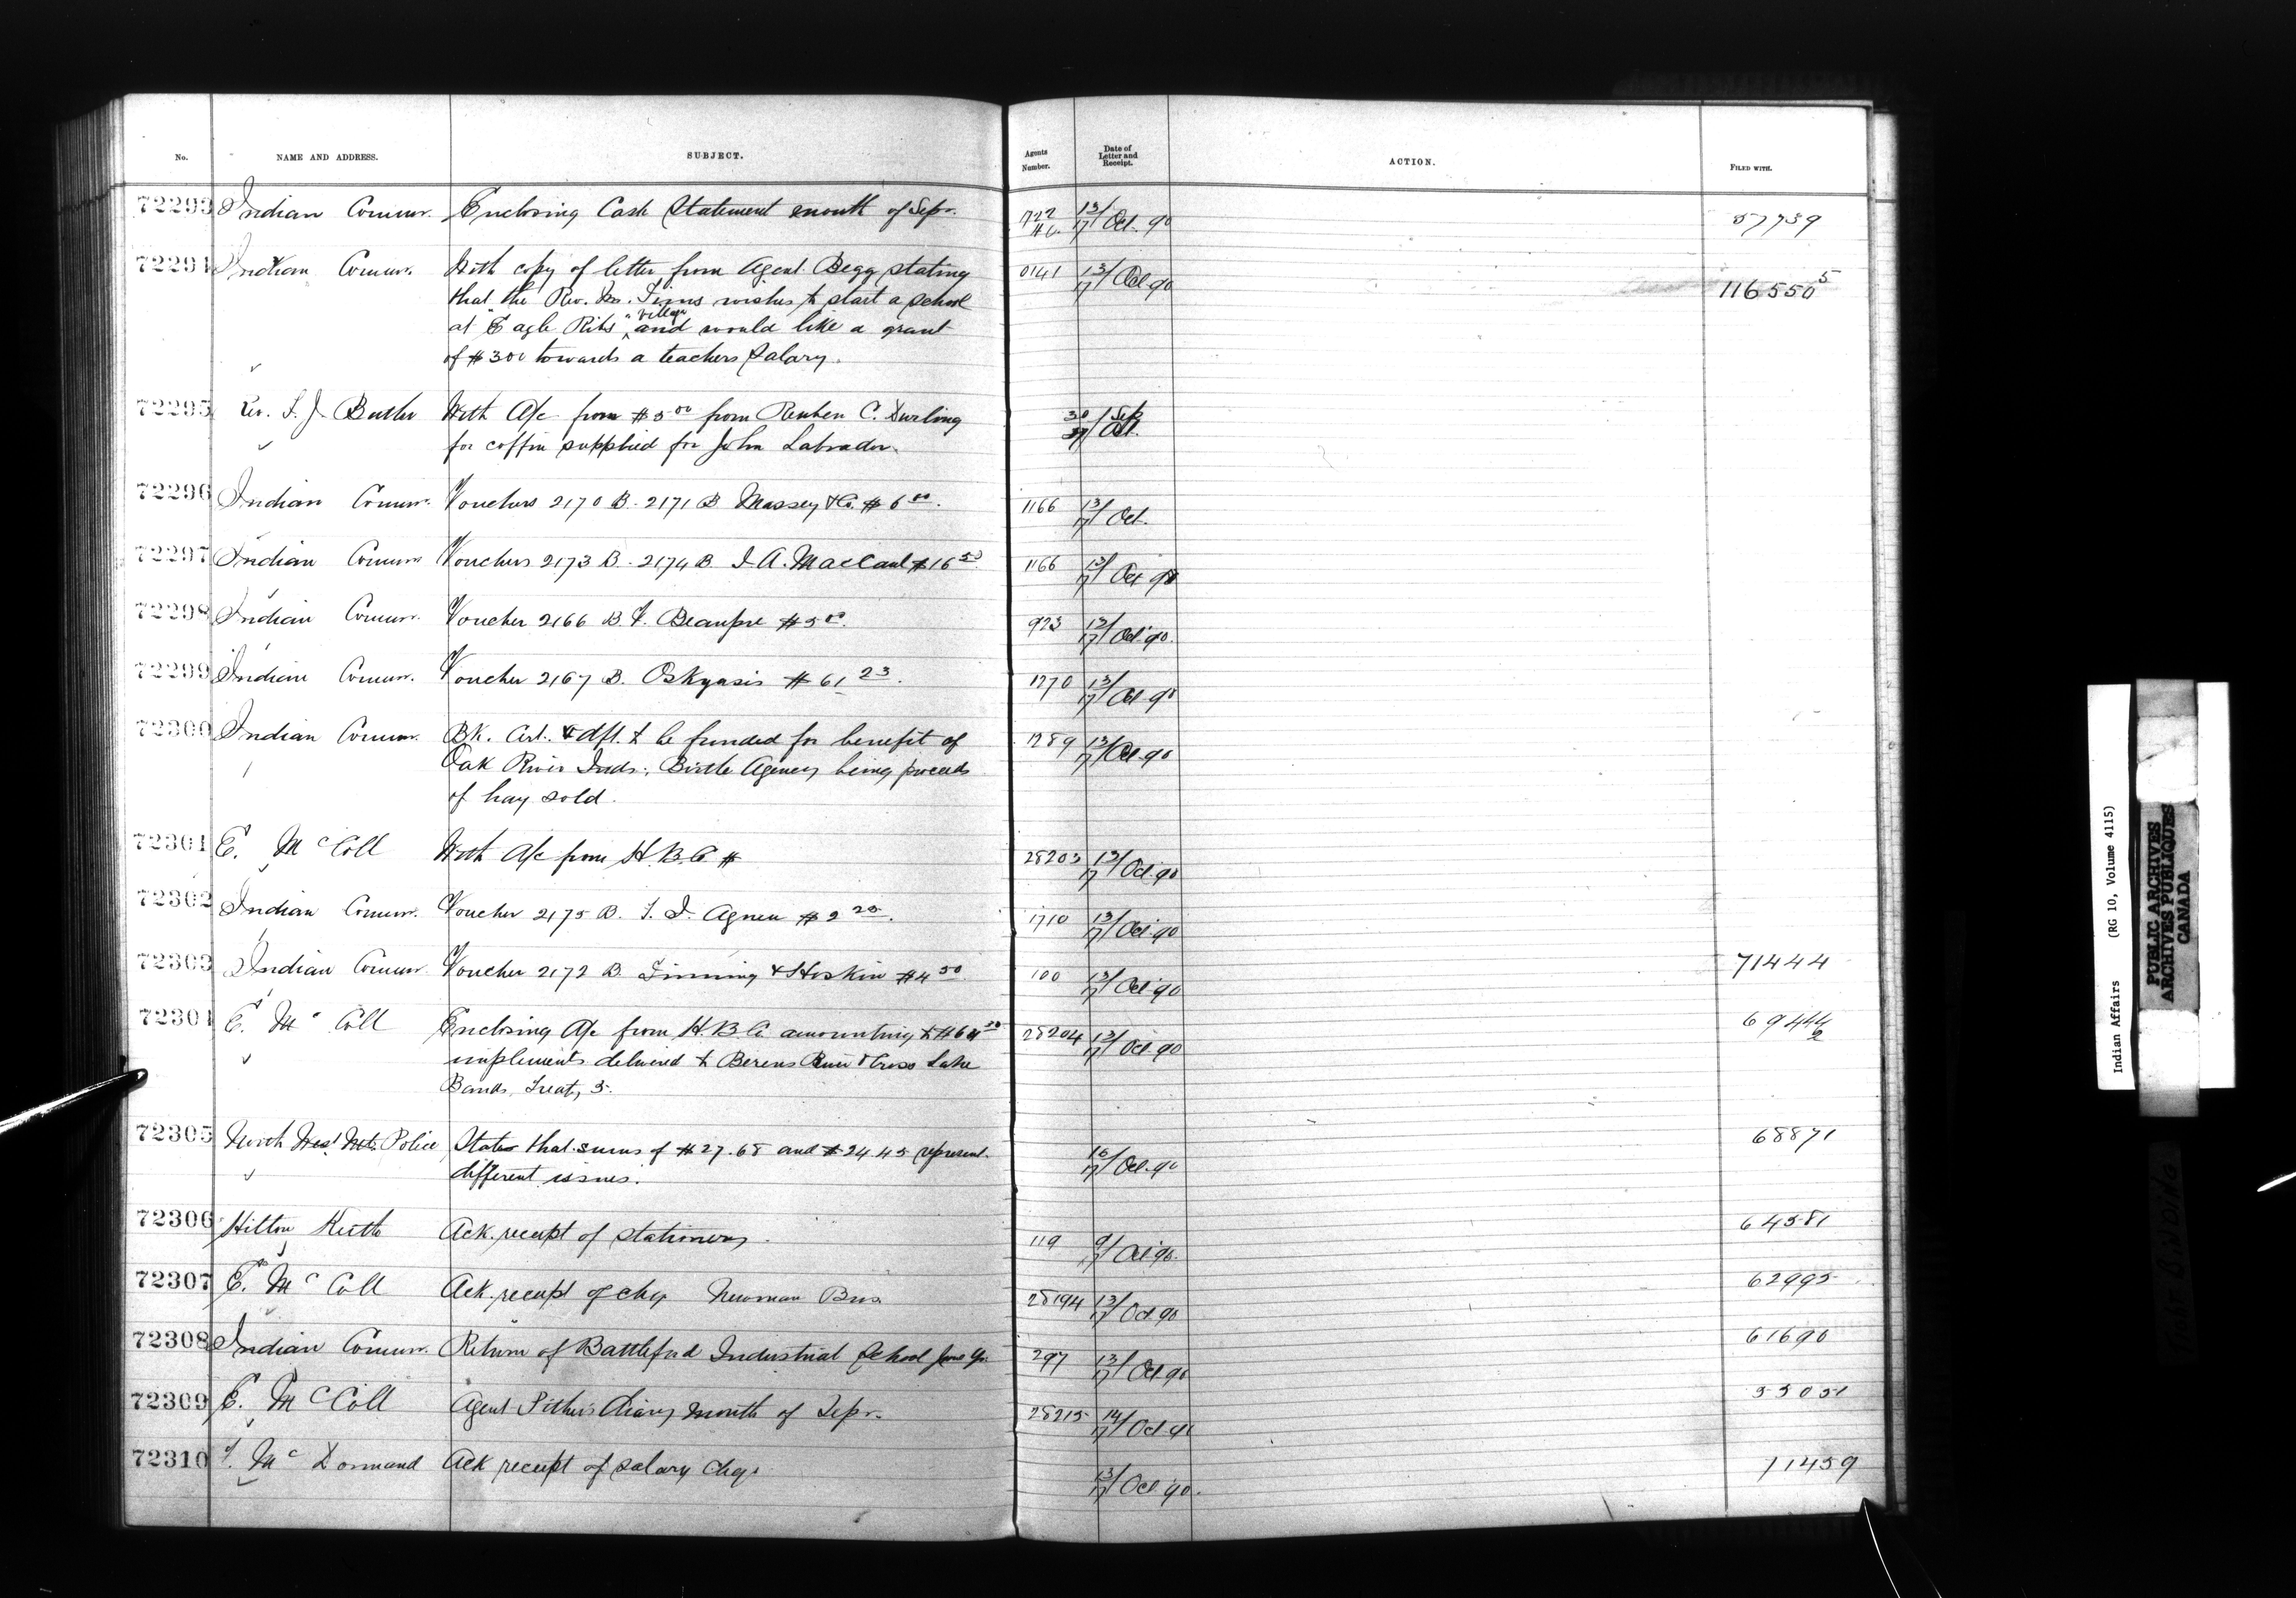 No. NAME AND ADDRESS. SUBJECT. Agents Number. Date of Letter and Receipt. ACTION. FILED WITH.
72293 Indian Commr. Enclosing Cash Statement month of Sepr. 722 13/17 Oct. 90 57739
72294 Indian Commr. With copy of letter from Agent Begg stating 0141 13/17 Oct 90 116550 5
that the Rev. Mr. Tims wishes to start a school
at "Eagle Ribs" Village and would like a grant
of $300 towards a teachers salary.
72295 Rev. T. J. Butler With A/c from $5 00 from Reuben C. Durling 30/17 Sep Oct.
for coffin supplied for John Labrador.
72296 Indian Commr. Vouchers 2170 B. 2171 B Massey & Co. $6 00. 1166 13/17 Oct.
72297 Indian Commr Vouchers 2173 B. 2174 B. I. A. MacCaul $16 50 1166 13/17 Oct 90
72298 Indian Commr. Voucher 2166 B. F. Beaupre $5 00. 923 13/17 Oct. 90.
72299 Indian Commr. Voucher 2167 B. Oskyasis $61 23. 1270 13/17 Oct 90
72300 Indian Commr. Bk. Cert. & dft. to be funded for benefit of 1289 13/17 Oct 90
Oak River Inds., Birtle Agency being proceeds
of hay sold.
72301 E. McColl With A/c from H. B. Co $ 28203 13/17 Oct. 90
72302 Indian Commr. Voucher 2175 B. T. I. Agnew $2 25. 1710 13/17 Oct. 90
72303 Indian Commr. Voucher 2172 B. Tinning & Hoskin $4 50. 100 13/17 Oct 90 71444
72304 E. McColl Enclosing A/c from H. B. Co. amounting to 28204 13/17 Oct 90 69444 2
implements delivered to Berens River & Cross Lake
Bands, Treaty 5.
72305 North West Mtd. Police States that sums of $27.68 and $24.45 represent 16/17 Oct. 90 68871
different issues.
72306 Hilton Keith Ack. receipt of stationery. 119 9/17 Oct 90. 64581
72307 E. McColl Ack. receipt of chq Newman Bros 28194 13/17 Oct 90 62995
72308 Indian Commr. Return of Battleford Industrial School June Qr. 297 13/17 Oct 90 61690
72309 E. McColl Agent Pither's diary month of Sepr. 28215 14/17 Oct 90 55051
72310 McDormand Ack receipt of salary chq. 13/17 Oct. 90. 11459
Indian Affairs (RG 10, Volume 4115)
PUBLIC ARCHIVES
ARCHIVES PUBLIQUES
CANADA